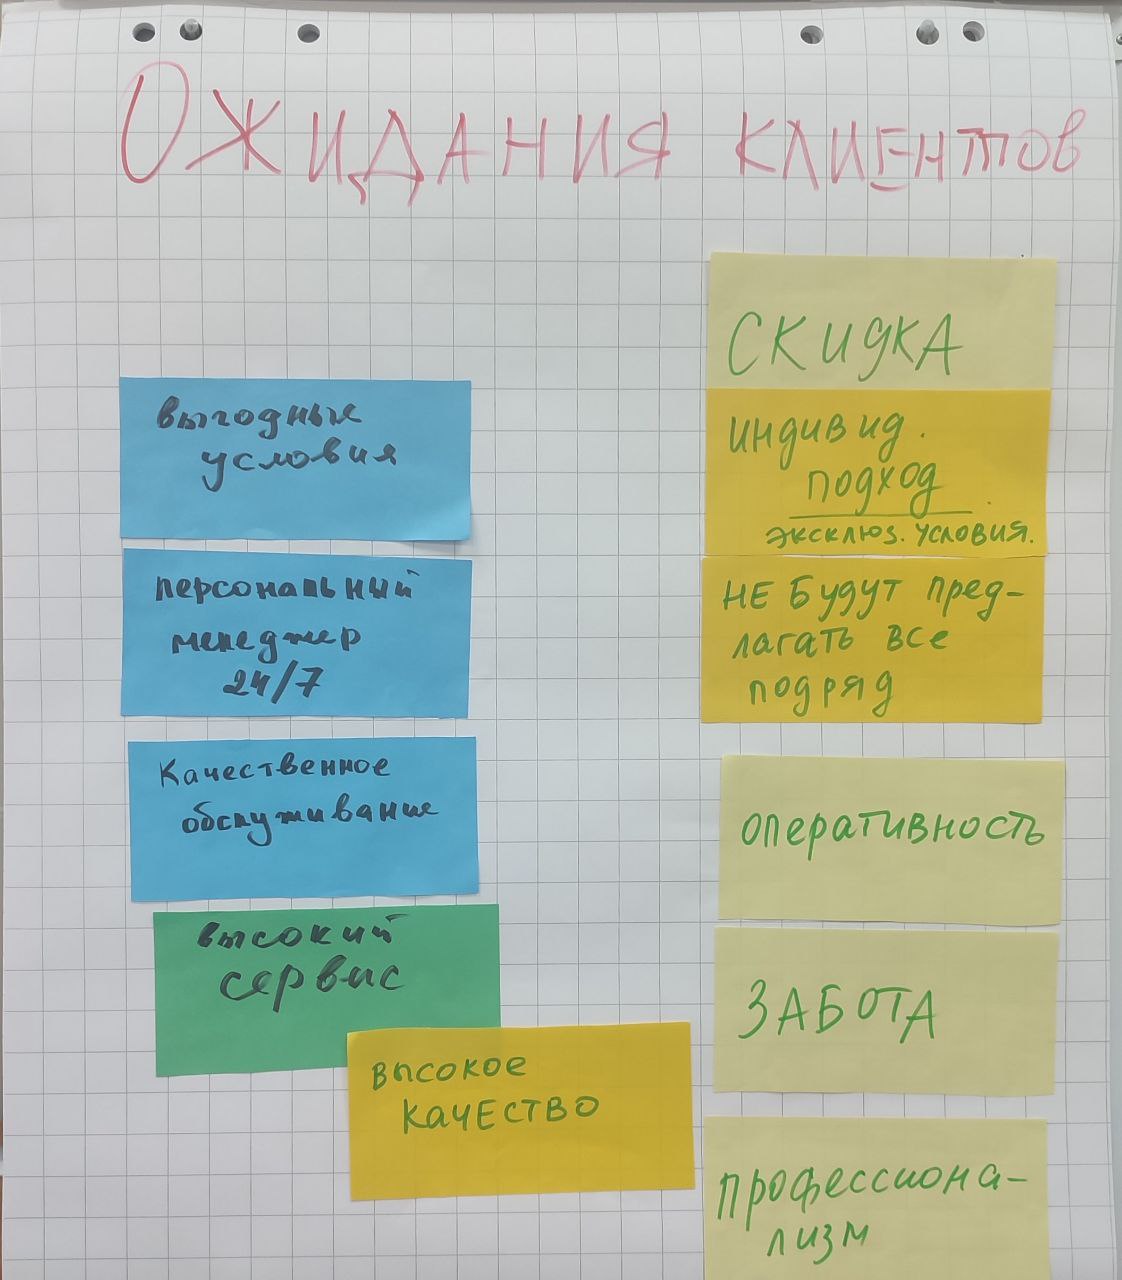 ОЖИДАНИЯ КЛИЕНТОВ
выгодные
условия
персональный
менеджер
24/7
Качественное
обслуживание
высокий
сервис
высокое
качество
СКИДКА
индивид.
подход
эксклюз. условия.
НЕ БУДУТ пред-
лагать все
подряд
оперативность
ЗАБОТА
профессиона-
лизм